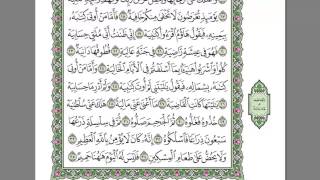 يَوْمَئِذٍ تُعْرَضُونَ لَا تَخْفَىٰ مِنكُمْ خَافِيَةٌ ١٨ فَأَمَّا مَنْ أُوتِيَ كِتَٰبَهُۥ
بِيَمِينِهِۦ فَيَقُولُ هَآؤُمُ ٱقْرَءُوا۟ كِتَٰبِيَهْ ١٩ إِنِّي ظَنَنتُ أَنِّي مُلَٰقٍ حِسَابِيَهْ ٢٠
فَهُوَ فِي عِيشَةٍ رَّاضِيَةٍ ٢١ فِي جَنَّةٍ عَالِيَةٍ ٢٢ قُطُوفُهَا دَانِيَةٌ ٢٣
كُلُوا۟ وَٱشْرَبُوا۟ هَنِيٓـًٔۢا بِمَآ أَسْلَفْتُمْ فِي ٱلْأَيَّامِ ٱلْخَالِيَةِ ٢٤ وَأَمَّا مَنْ أُوتِيَ
كِتَٰبَهُۥ بِشِمَالِهِۦ فَيَقُولُ يَٰلَيْتَنِي لَمْ أُوتَ كِتَٰبِيَهْ ٢٥ وَلَمْ أَدْرِ مَا حِسَابِيَهْ ٢٦
يَٰلَيْتَهَا كَانَتِ ٱلْقَاضِيَةَ ٢٧ مَآ أَغْنَىٰ عَنِّي مَالِيَهْ ٢٨ هَلَكَ عَنِّي سُلْطَٰنِيَهْ ٢٩
خُذُوهُ فَغُلُّوهُ ٣٠ ثُمَّ ٱلْجَحِيمَ صَلُّوهُ ٣١ ثُمَّ فِي سِلْسِلَةٍ ذَرْعُهَا
سَبْعُونَ ذِرَاعًا فَٱسْلُكُوهُ ٣٢ إِنَّهُۥ كَانَ لَا يُؤْمِنُ بِٱللَّهِ ٱلْعَظِيمِ ٣٣
وَلَا يَحُضُّ عَلَىٰ طَعَامِ ٱلْمِسْكِينِ ٣٤ فَلَيْسَ لَهُ ٱلْيَوْمَ هَٰهُنَا حَمِيمٌ ٣٥